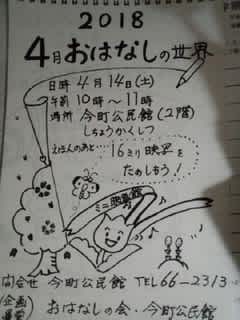 2018
4月おはなしの世界
日時 4月14日(土)
午前 10時～11時
場所 今町公民館(2階)
しちょうかくしつ
えほんのあと…16ミリ映写を
たのしもう!
ミニ
問合せ 今町公民館 TEL66-2313
企画
運営 おはなしの会・今町公民館